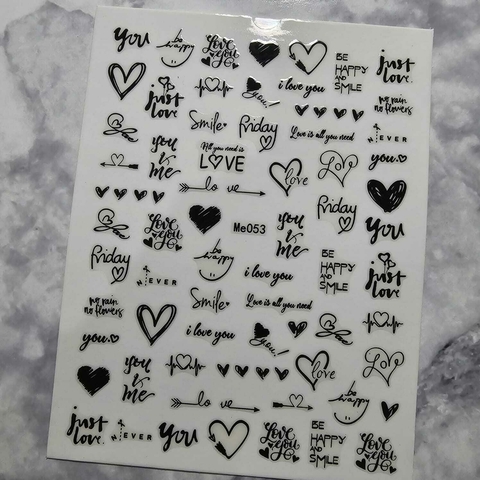 You
be happy
Love
you
BE
HAPPY
AND
SMILE
just
love.
just
love
you!
i love you
no rain
no flowers
Smile
Friday
Love is all you need
NEVER
you
&
me
All you need is
LOVE
love
Love
you.
lo ve
Friday
You
Love
you
Me053
you
&
me
just
love
Friday
be happy
i love you
BE
HAPPY
AND
SMILE
NEVER
Smile
Love is all you need
no rain
no flowers
i love you
you!
you.
you
&
me
Love
lo ve
be happy
just
love.
NEVER
You
Love
you
BE
HAPPY
AND
SMILE
Love
you